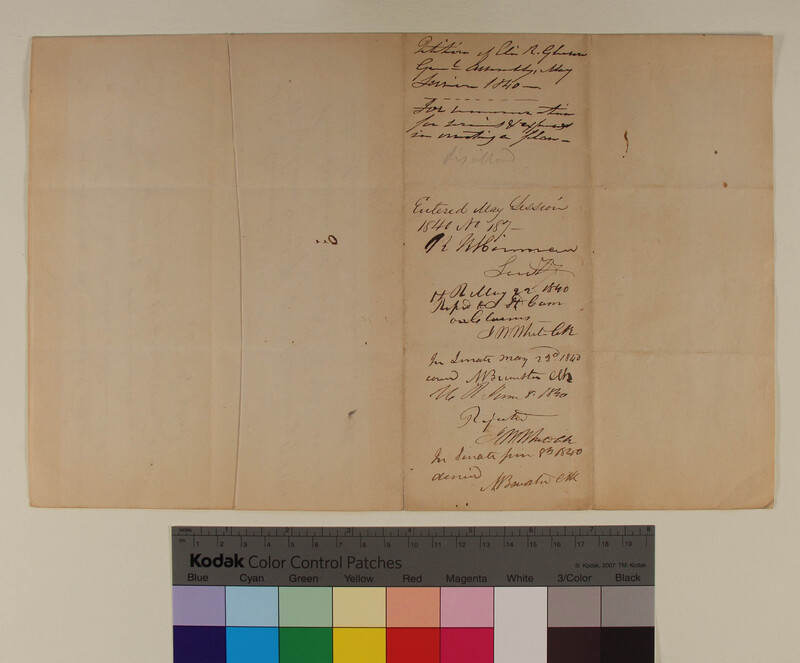 Petition of Eli R.
Genl Assembly, May
Session 1840 —
For remuneration
for services & expenses
in erecting a
Entered May Session
1840 No 187 —
R R Hinman
Secty
H R May 22. 1840
Refd to Com
on Claims
J W White Clk
In Senate May 23d 1840
concd Brewster Clk
H R June 8 1840
Rejected
Clk
In Senate June 8th 1840
denied
Brewster Clk
1 2 3 4 5 6 7 8
1 2 3 4 5 6 7 8 9 10 11 12 13 14 15 16 17 18 19
Kodak Color Control Patches
© Kodak, 2007 TM: Kodak
Blue Cyan Green Yellow Red Magenta White 3/Color Black